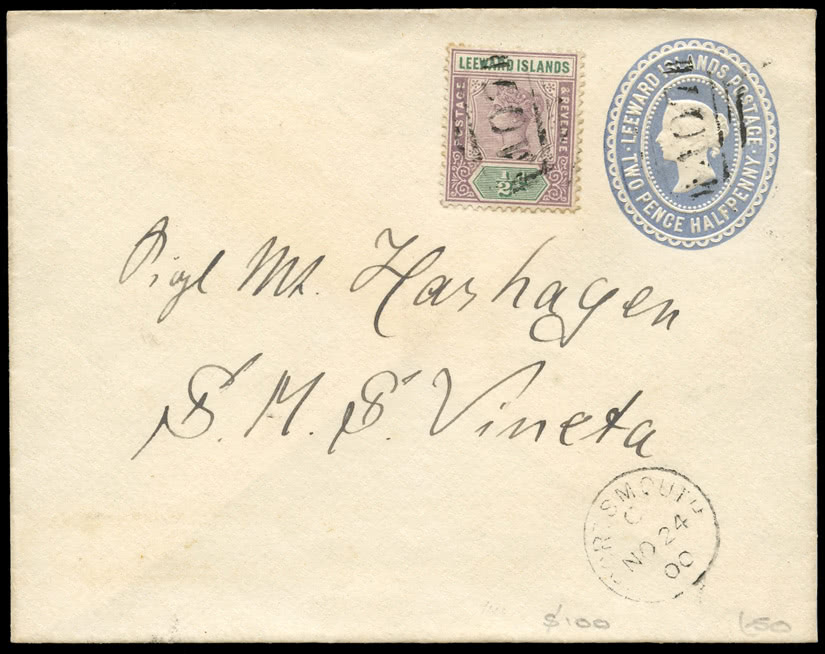 LEEWARD ISLANDS
POSTAGE
& REVENUE
1/2
LEEWARD ISLANDS POSTAGE
TWO PENCE HALFPENNY
Mt. Harhagen
S. M. S. Vineta
PORTSMOUTH
C
NO 24
00
$100